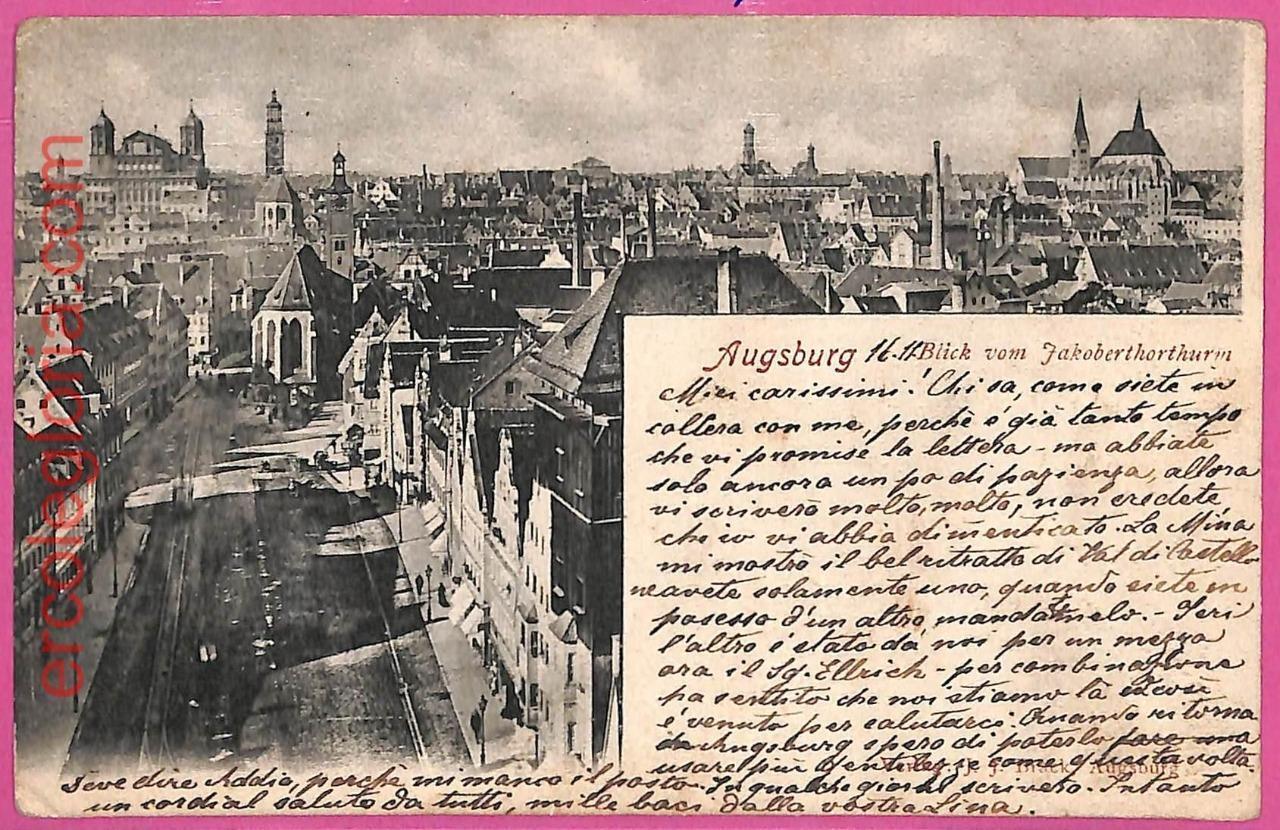 Augsburg 16.11 Blick vom Jakoberthorthurm
Miei carissimi! Chi sa, come siete in
collera con me, perchè é già tanto tempo
che vi promise la lettera - ma abbiate
solo ancora un po di pazienza, allora
vi scriverò molto, molto, non credete
ch'io vi abbia dimenticato. La Mina
mi mostrò il bel ritratto di Val di Castello
ne avete solamente uno, quando siete in
posesso d'un altro, mandatmelo. - Jeri
l'altro é stato da noi per un mezza
ora il Sg. Ellrich - per combinazione
ha sentito che noi stiamo là e così
é venuto per salutarci. Quando ritorna
da Augsburg spero di poterlo fare una
usare più gentilezze come questa volta.
J. J. Brack, Augsburg
Deve dire Addio, perchè mi manca il posto. In qualche giorni scriverò. Intanto
un cordial saluto da tutti, mille baci dalla vostra Lina.
ercolegloria.com